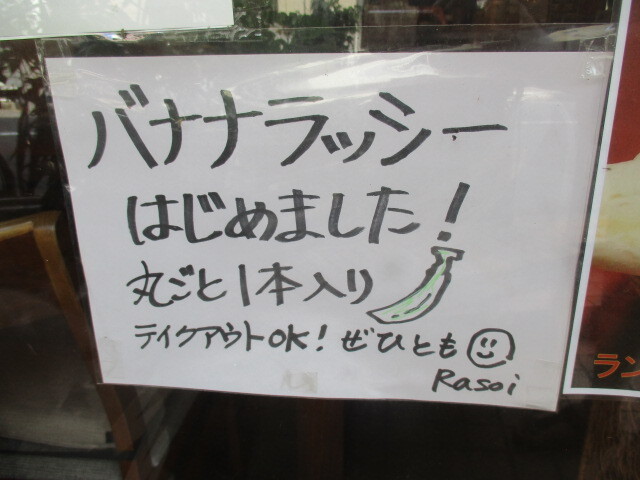 バナナラッシー
はじめました!
丸ごと1本入り
テイクアウトOK! ぜひとも
Rasoi
ラン